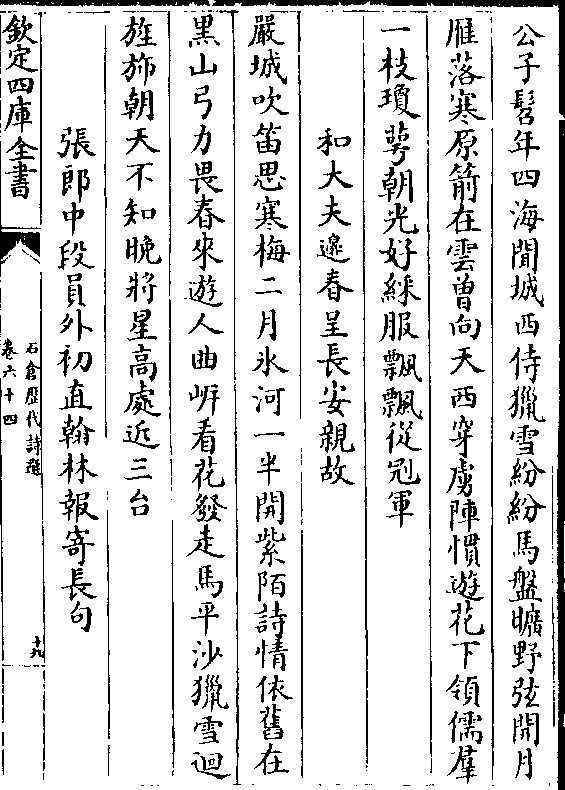 公子髫年四海聞城西侍獵雪紛紛馬盤曠野弦開月
雁落寒原箭在雲曾向天西穿虜陣慣遊花下領儒羣
一枝瓊萼朝光好綵服飄飄從冠軍
和大夫邊春呈長安親故
嚴城吹笛思寒梅二月氷河一半開紫陌詩情依舊在
黑山弓力畏春來遊人曲岍看花發走馬平沙獵雪迴
旌斾朝天不知晚將星高處近三台
張郎中段員外初直翰林報寄長句
欽定四庫全書
石倉歷代詩選
卷六十四
十九